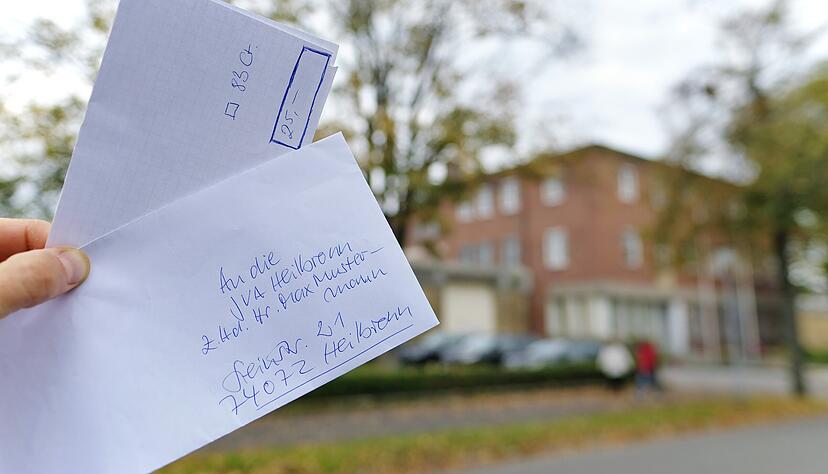 □ 83 Ct.
25,-
An die
JVA Heilbronn
z.Hd. Hr. Max Muster-
mann
Steinstr. 21
74072 Heilbronn